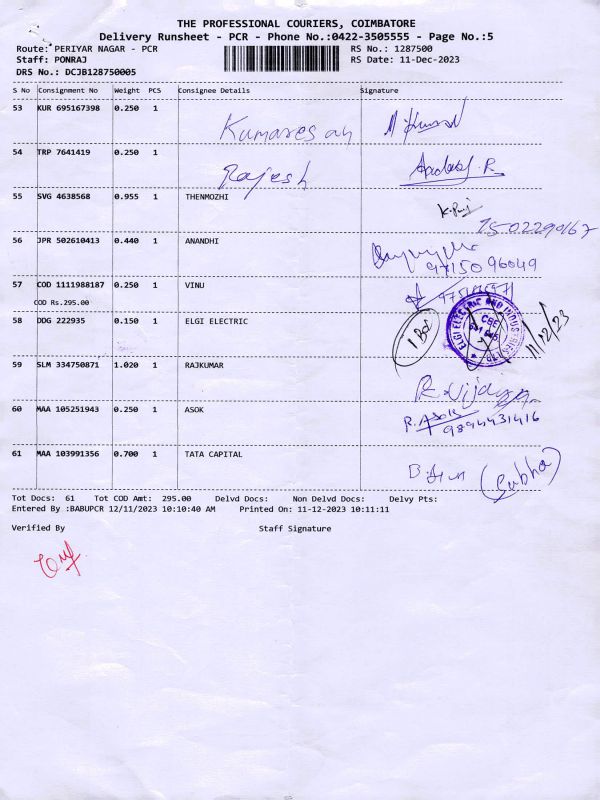 THE PROFESSIONAL COURIERS, COIMBATORE
Delivery Runsheet - PCR - Phone No.:0422-3505555 - Page No.:5
Route: PERIYAR NAGAR - PCR RS No.: 1287500
Staff: PONRAJ RS Date: 11-Dec-2023
DRS No.: DCJB128750005
S No Consignment No Weight PCS Consignee Details Signature
53 KUR 695167398 0.250 1
Kumaresan
54 TRP 7641419 0.250 1
Rajesh
55 SVG 4638568 0.955 1 THENMOZHI
56 JPR 502610413 0.440 1 ANANDHI
9715096049
57 COD 1111988187 0.250 1 VINU
COD Rs.295.00
58 DDG 222935 0.150 1 ELGI ELECTRIC
1 Box
ELGI ELECTRIC AND INDUSTRIES LTD
CBE
11/12/23
59 SLM 334750871 1.020 1 RAJKUMAR
60 MAA 105251943 0.250 1 ASOK
R. ASOK
9894431416
61 MAA 103991356 0.700 1 TATA CAPITAL
(Subha)
Tot Docs: 61 Tot COD Amt: 295.00 Delvd Docs: Non Delvd Docs: Delvy Pts:
Entered By :BABUPCR 12/11/2023 10:10:40 AM Printed On: 11-12-2023 10:11:11
Verified By Staff Signature